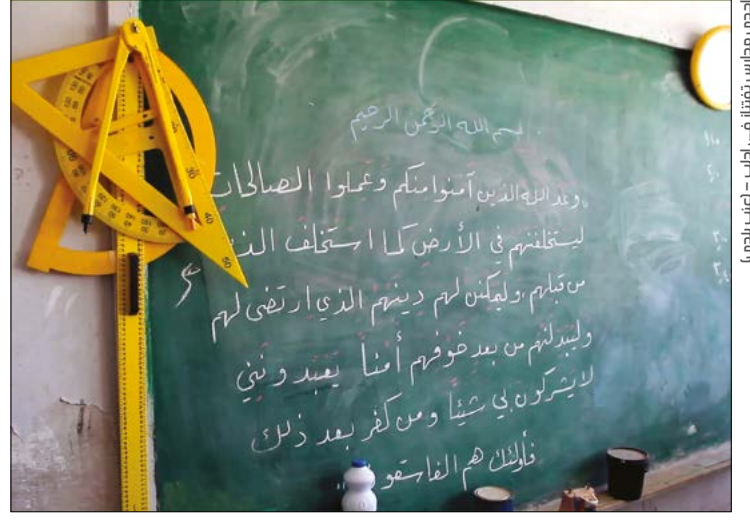 بسم الله الرحمن الرحيم
وعد الله الذين آمنوا منكم وعملوا الصالحات
ليستخلفنهم في الأرض كما استخلف الذ
من قبلهم وليمكنن لهم دينهم الذي ارتضى لهم
وليبدلنهم من بعد خوفهم أمناً يعبدونني
لايشركون بي شيئاً ومن كفر بعد ذلك
فأولئك هم الفاسقو